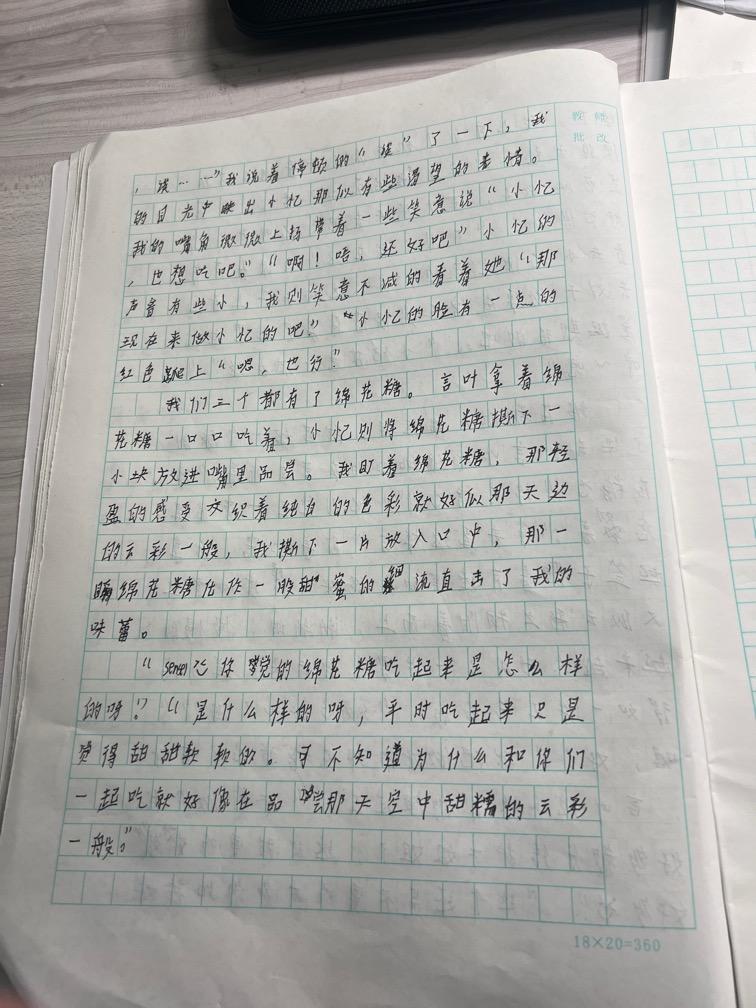 教师
批改
，诶……”我说着停顿的“诶”了一下，我
的目光中映出小忆那似有些渴望的表情。
我的嘴角微微上扬带着一些笑意说“小忆
，也想吃吧。”“啊！唔，还好吧”小忆的
声音有些小，我则笑意不减的看着她“那
现在来做小忆的吧？”小忆的脸有一点的
红色爬上“嗯，也行”
我们三个都有了绵花糖。言叶拿着绵
花糖一口口吃着，小忆则将绵花糖撕下一
小块放进嘴里品尝。我盯着绵花糖，那轻
盈的感受交织着纯白的色彩就好似那天边
的云彩一般，我撕下一片放入口中，那一
瞬绵花糖化作一股甜蜜的细流直击了我的
味蕾。
“sensei你觉的绵花糖吃起来是怎么样
的呀？”“是什么样的呀，平时吃起来只是
觉得甜甜软软的。可不知道为什么和你们
一起吃就好像在品尝那天空中甜糯的云彩
一般。”
18×20=360